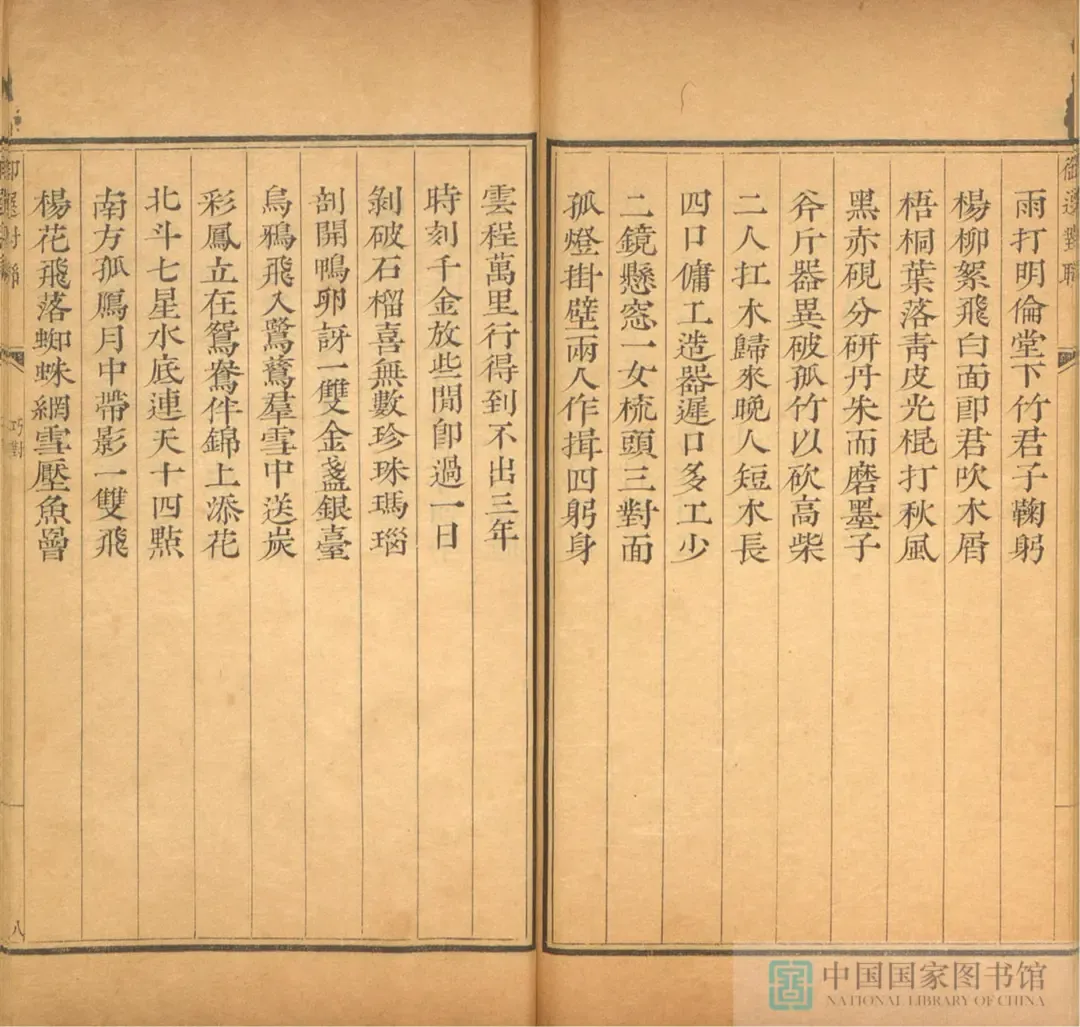 雨打明倫堂下竹君子鞠躬
楊柳絮飛白面郎君吹木屑
梧桐葉落青皮光棍打秋風
黑赤硯分研丹朱而磨墨子
斧斤器異破孤竹以砍高柴
二人扛木歸來晚人短木長
四口傭工造器遲口多工少
二鏡懸窓一女梳頭三對面
孤燈掛壁兩人作揖四躬身
雲程萬里行得到不出三年
時刻千金放些閒卽過一日
剝破石榴喜無數珍珠瑪瑙
剖開鴨卵訝一雙金盞銀臺
烏鴉飛入鷺鷥羣雪中送炭
彩鳳立在鴛鴦伴錦上添花
北斗七星水底連天十四點
南方孤鴈月中帶影一雙飛
楊花飛落蜘蛛網雪壓魚罾
巧對
八
中国国家图书馆
NATIONAL LIBRARY OF CHINA